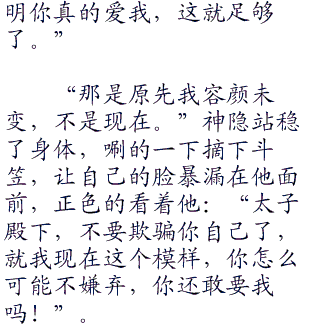 明你真的爱我，这就足够
了。”
“那是原先我容颜未
变，不是现在。”神隐站稳
了身体，唰的一下摘下斗
笠，让自己的脸暴漏在他面
前，正色的看着他：“太子
殿下，不要欺骗你自己了，
就我现在这个模样，你怎么
可能不嫌弃，你还敢要我
吗！”。